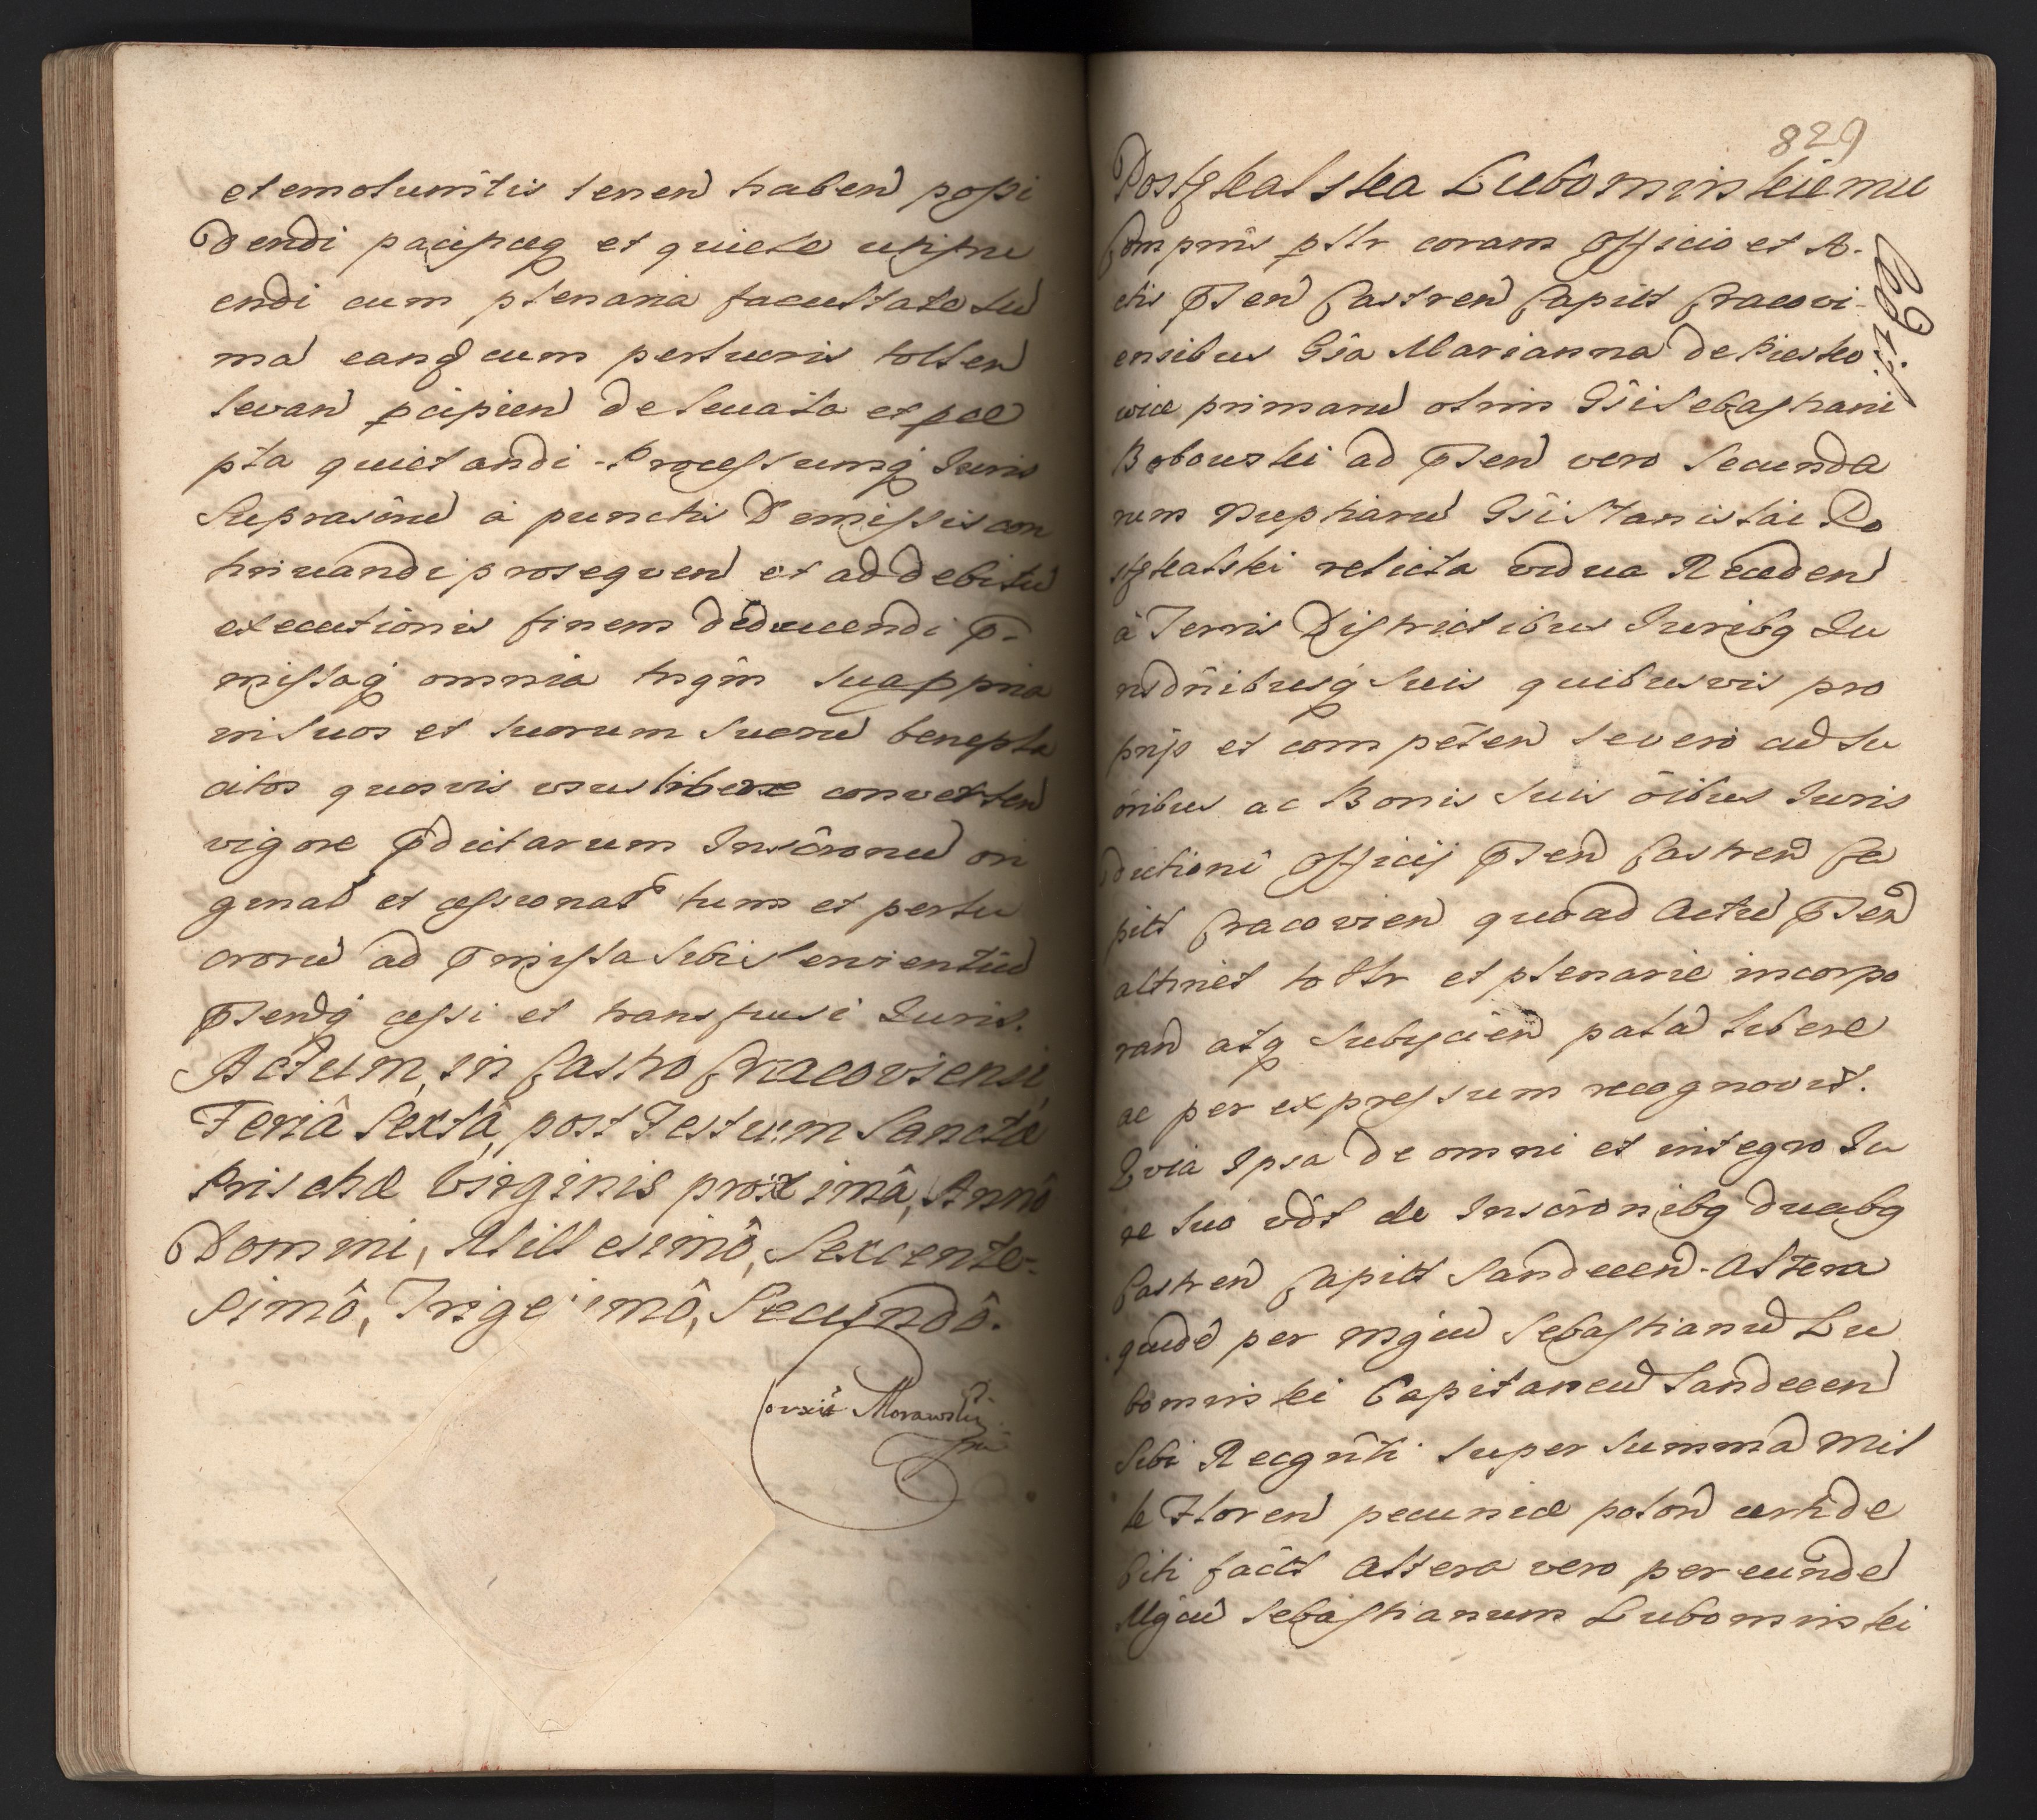 et emolumẽtis tenen haben possi
dendi pacificeq et quiete utifru
endi cum plenaria facultate su
ma eandq cum perlucris tollen
levan pcipien de levata et pce
pta quietandi Processumq Iuris
suprascriu à punctis Demissis con
tinuandi prosequen et ad debitu
executionis finem deducendi p̃
missaq omnia tnqm sua ppria
in suos et suorum succru benepla
citos quosvis usus libere converten
vigore pdictarum Inscronu ori
ginal et cessional tum et perlu
croru ad pmissa sibi servientiu
psendq cessi et transfusi Iuris.
Actum, in Castro Cracoviensi,
Feriâ Sextâ, post Festum Sanctæ
Priscæ Virginis proximâ, Annô
Domini, Millesimô, Sexcente-
simô, Trigesimô, Secundô.
Morawski
829
Postękalska Lubomirskiemu
Compñs psltr coram Officio et A-
ctis psen Castren Capitt Cracovi
ensibus Gsa Marianna de Piesko
wice primaru olim Gsi Sebastiani
Bobowski ad psen vero secunda
rum nuptiaru Gsi Stanislai Po
stękalski relicta vidua Receden
à Terris Districtibus Iuribq Iu
risdñibusq suis quibusvis pro
prijs et compẽten se vero cu su
õribus ac Bonis suis õibus Iuris
dictioni Officij psen Castren Ca
pitt Cracovien quo ad Actu psen
attinet tottr et plenarie incorpo
ran atq subijcien palã libere
ac per expressum recognovit.
Quia Ipsa de omni et integro Iu
re suo vdt de Inscronibq duabq
Castren Capitt Sandecen Altera
quide per Mgcu Sebastianu Lu
bomirski Capitaneu Sandecen
Sibi Recgñti super summã Mil
le Floren pecuniæ polon certi de
biti fact Altera vero per eunde
Mgcu Sebastianum Lubomirski